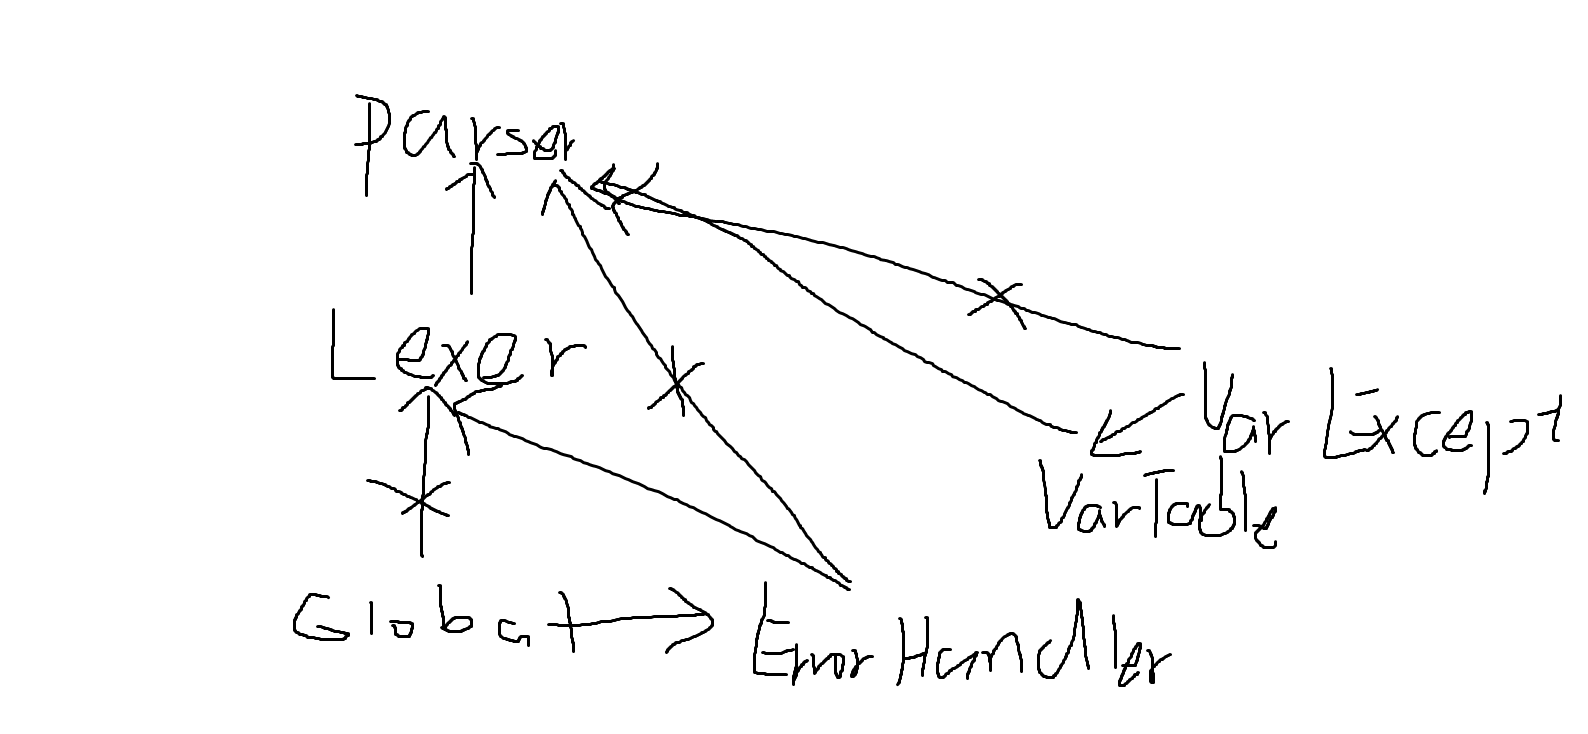 Parser
Lexer
Var Except
VarTable
Global
ErrorHandler